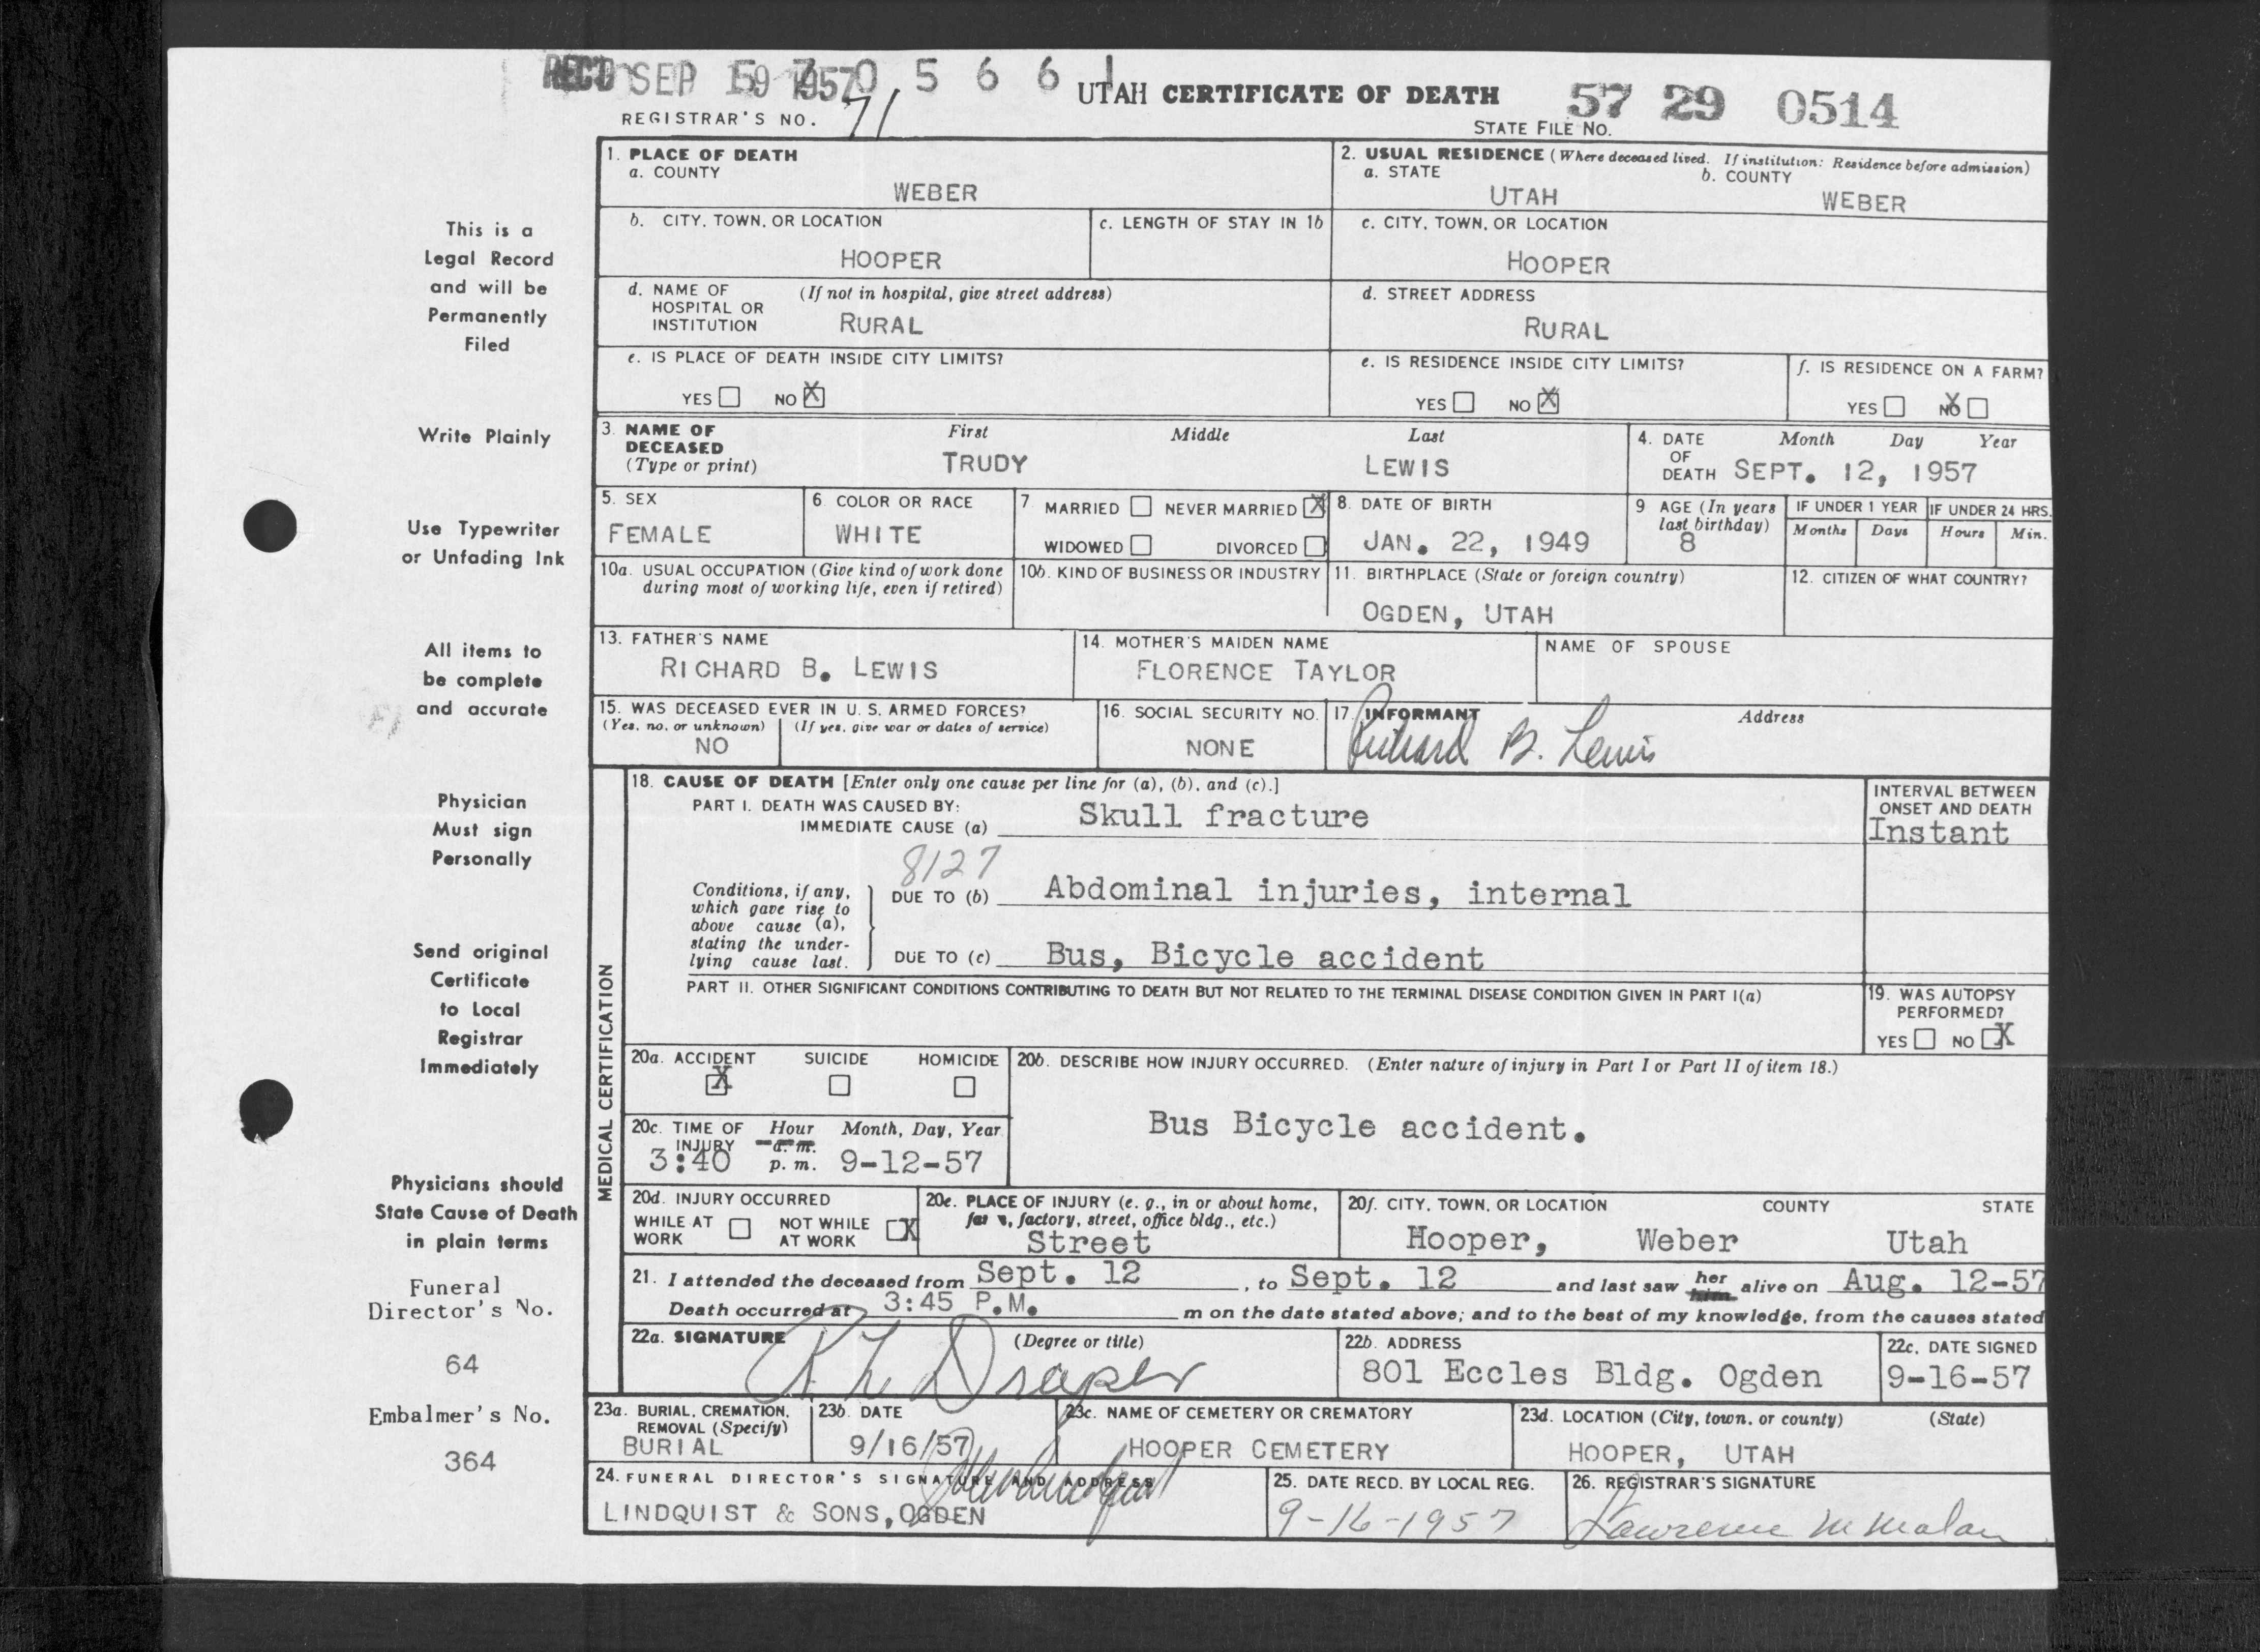 REC'D SEP 1957 0 5 6 6 1 UTAH CERTIFICATE OF DEATH 57 29 0514
REGISTRAR'S NO. 71 STATE FILE NO.
1. PLACE OF DEATH
a. COUNTY
WEBER
2. USUAL RESIDENCE (Where deceased lived. If institution: Residence before admission)
a. STATE b. COUNTY
UTAH WEBER
b. CITY, TOWN, OR LOCATION
HOOPER
c. LENGTH OF STAY IN 1b
c. CITY, TOWN, OR LOCATION
HOOPER
d. NAME OF HOSPITAL OR INSTITUTION (If not in hospital, give street address)
RURAL
d. STREET ADDRESS
RURAL
e. IS PLACE OF DEATH INSIDE CITY LIMITS?
YES NO X
e. IS RESIDENCE INSIDE CITY LIMITS?
YES NO X
f. IS RESIDENCE ON A FARM?
YES NO X
3. NAME OF DECEASED (Type or print) First Middle Last
TRUDY LEWIS
4. DATE OF DEATH Month Day Year
SEPT. 12, 1957
5. SEX
FEMALE
6. COLOR OR RACE
WHITE
7. MARRIED NEVER MARRIED X
WIDOWED DIVORCED
8. DATE OF BIRTH
JAN. 22, 1949
9 AGE (In years last birthday)
8
IF UNDER 1 YEAR
Months Days
IF UNDER 24 HRS.
Hours Min.
10a. USUAL OCCUPATION (Give kind of work done during most of working life, even if retired)
10b. KIND OF BUSINESS OR INDUSTRY
11. BIRTHPLACE (State or foreign country)
OGDEN, UTAH
12. CITIZEN OF WHAT COUNTRY?
13. FATHER'S NAME
RICHARD B. LEWIS
14. MOTHER'S MAIDEN NAME
FLORENCE TAYLOR
NAME OF SPOUSE
15. WAS DECEASED EVER IN U. S. ARMED FORCES?
(Yes, no, or unknown) (If yes, give war or dates of service)
NO
16. SOCIAL SECURITY NO.
NONE
17. INFORMANT Address
Richard B. Lewis
MEDICAL CERTIFICATION
18. CAUSE OF DEATH [Enter only one cause per line for (a), (b), and (c).]
PART I. DEATH WAS CAUSED BY:
IMMEDIATE CAUSE (a) Skull fracture
INTERVAL BETWEEN ONSET AND DEATH
Instant
8127
Conditions, if any, which gave rise to above cause (a), stating the underlying cause last.
DUE TO (b) Abdominal injuries, internal
DUE TO (c) Bus, Bicycle accident
PART II. OTHER SIGNIFICANT CONDITIONS CONTRIBUTING TO DEATH BUT NOT RELATED TO THE TERMINAL DISEASE CONDITION GIVEN IN PART I(a)
19. WAS AUTOPSY PERFORMED?
YES NO X
20a. ACCIDENT SUICIDE HOMICIDE
X
20b. DESCRIBE HOW INJURY OCCURRED. (Enter nature of injury in Part I or Part II of item 18.)
Bus Bicycle accident.
20c. TIME OF INJURY Hour Month, Day, Year
a. m.
3:40 p. m. 9-12-57
20d. INJURY OCCURRED
WHILE AT WORK NOT WHILE AT WORK X
20e. PLACE OF INJURY (e. g., in or about home, farm, factory, street, office bldg., etc.)
Street
20f. CITY, TOWN, OR LOCATION COUNTY STATE
Hooper, Weber Utah
21. I attended the deceased from Sept. 12, to Sept. 12 and last saw her him alive on Aug. 12-57
Death occurred at 3:45 P.M. m on the date stated above; and to the best of my knowledge, from the causes stated
22a. SIGNATURE (Degree or title)
Draper
22b. ADDRESS
801 Eccles Bldg. Ogden
22c. DATE SIGNED
9-16-57
23a. BURIAL, CREMATION, REMOVAL (Specify)
BURIAL
23b. DATE
9/16/57
23c. NAME OF CEMETERY OR CREMATORY
HOOPER CEMETERY
23d. LOCATION (City, town, or county) (State)
HOOPER, UTAH
24. FUNERAL DIRECTOR'S SIGNATURE AND ADDRESS
LINDQUIST & SONS, OGDEN
25. DATE RECD. BY LOCAL REG.
9-16-1957
26. REGISTRAR'S SIGNATURE
Lawrence M Malan
This is a
Legal Record
and will be
Permanently
Filed
Write Plainly
Use Typewriter
or Unfading Ink
All items to
be complete
and accurate
Physician
Must sign
Personally
Send original
Certificate
to Local
Registrar
Immediately
Physicians should
State Cause of Death
in plain terms
Funeral
Director's No.
64
Embalmer's No.
364